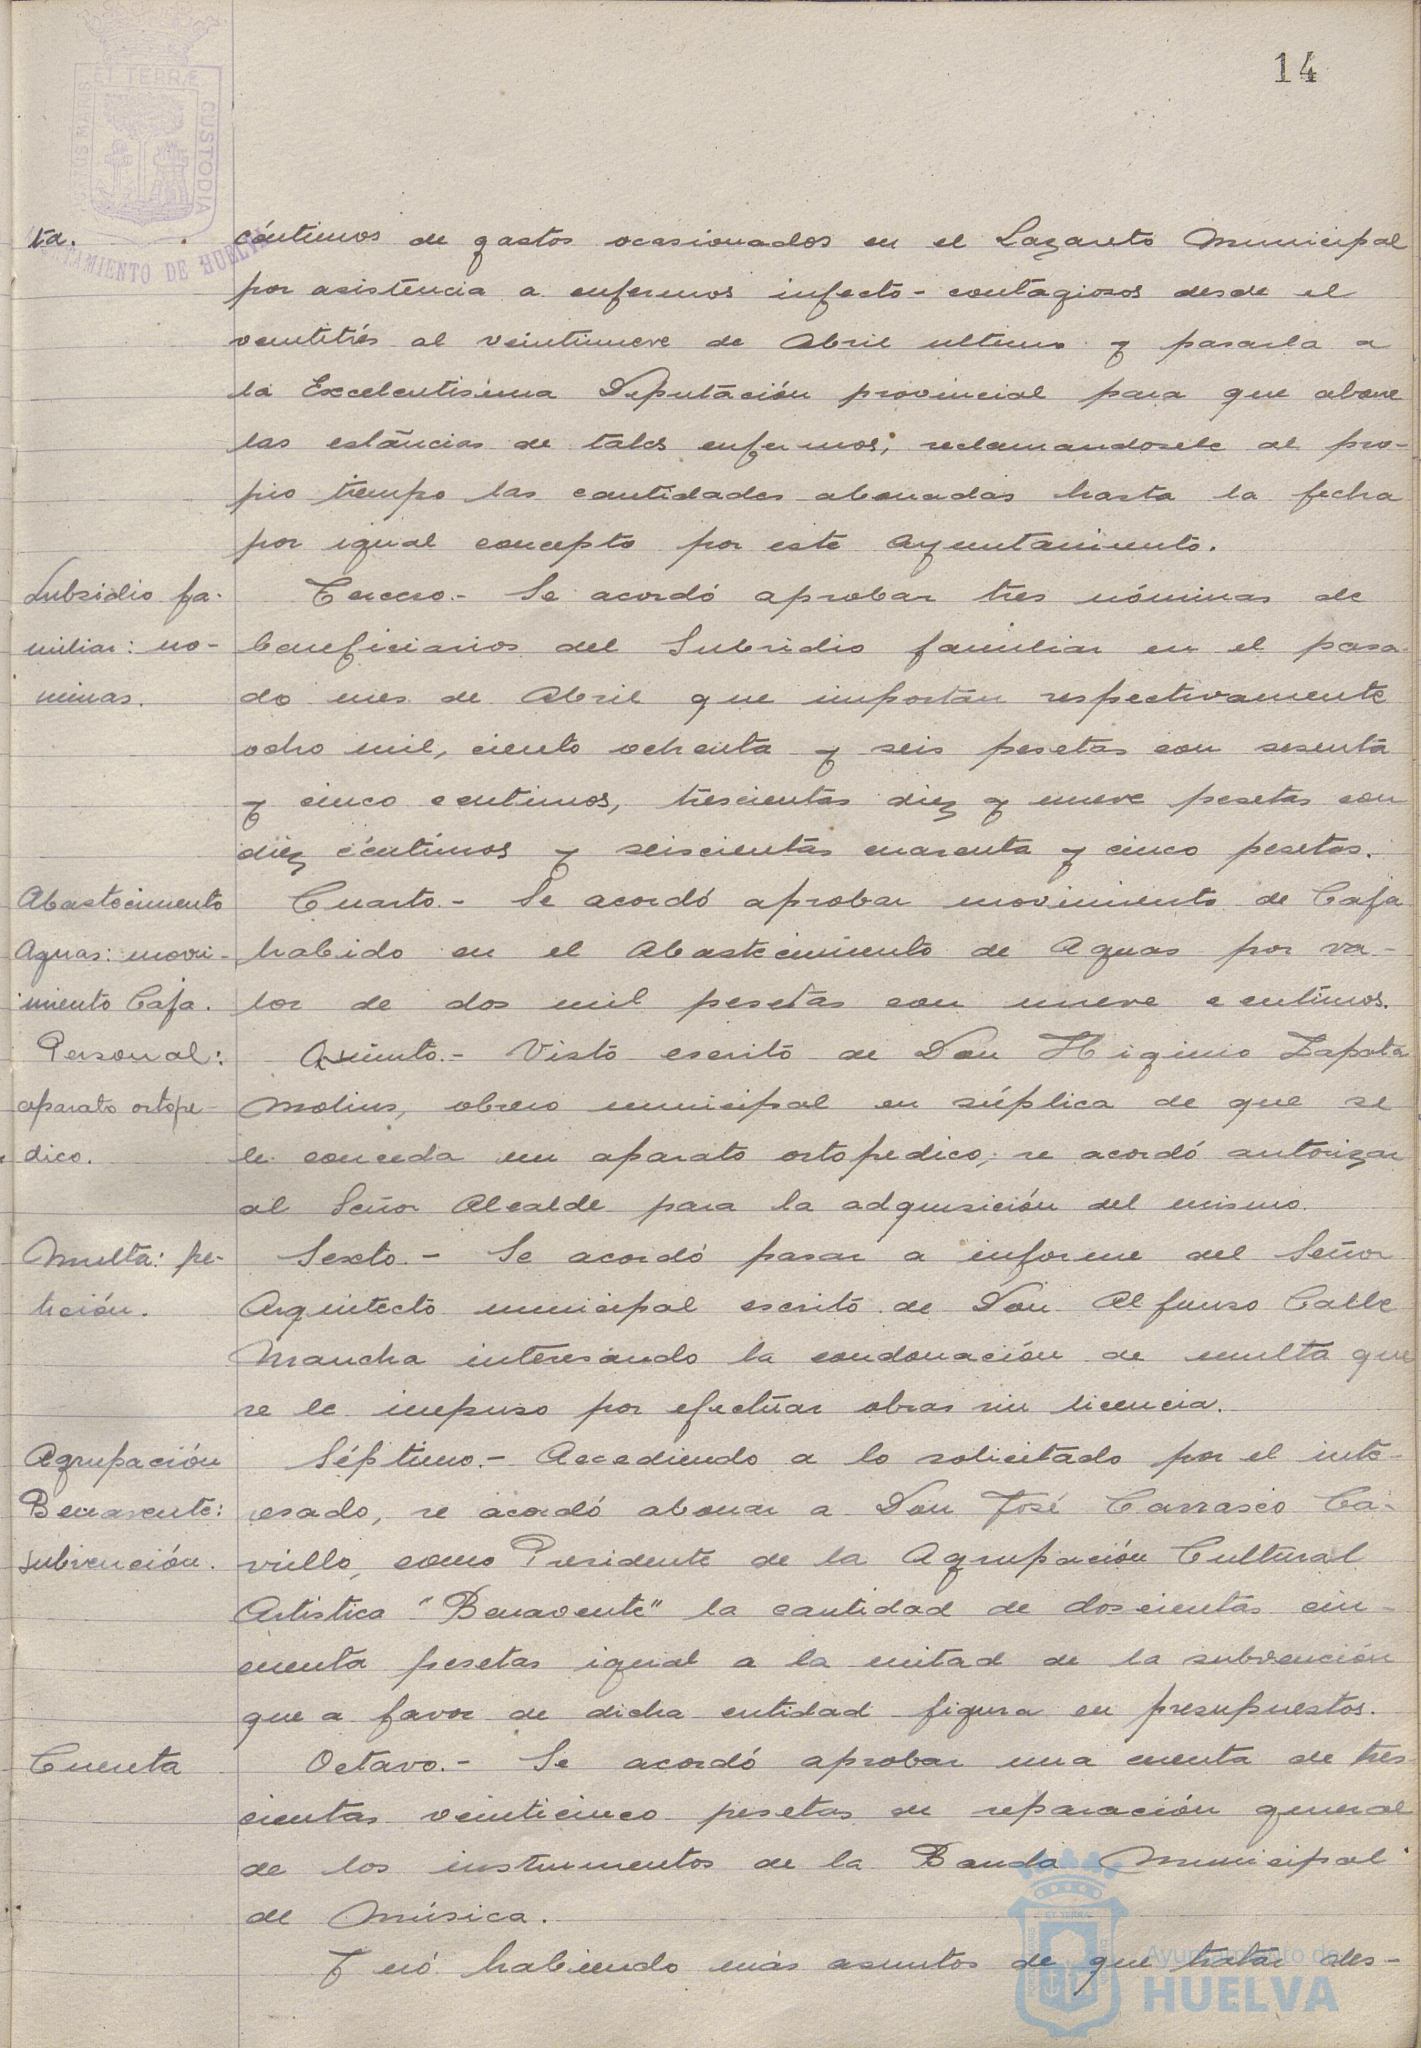 14
ta. céntimos de gastos ocasionados en el Lazareto Municipal
por asistencia a enfermos infecto-contagiosos desde el
ventitrés al veintinueve de Abril ultimo y pasarla a
la Excelentisima Diputación provincial para que abone
las estancias de tales enfermos; reclamandosele al pro-
pio tiempo las cantidades abonadas hasta la fecha
por igual concepto por este Ayuntamiento.
Subsidio fa- Tercero.- Se acordó aprobar tres nóminas de
miliar: no- beneficiarios del Subsidio familiar en el pasa-
minas. do mes de Abril que importan respectivamente
ocho mil, ciento ochenta y seis pesetas con sesenta
y cinco centimos, trescientas diez y nueve pesetas con
diez céntimos y seiscientas cuarenta y cinco pesetas.
Abastecimiento Cuarto.- Se acordó aprobar movimiento de Caja
Aguas: movi- habido en el Abastecimiento de Aguas por va-
miento Caja. lor de dos mil pesetas con nueve centimos.
Personal: Quinto.- Visto escrito de Don Higinio Zapata
aparato ortope- Molins, obrero municipal en súplica de que se
dico. le conceda un aparato ortopedico, se acordó autorizar
al Señor Alcalde para la adquisición del mismo.
Multa: pe- Sexto.- Se acordó pasar a informe del Señor
tición. Arquitecto municipal escrito de Don Alfonso Calle
Mancha interesando la condonación de multa que
se le impuso por efectuar obras sin licencia.
Agrupación Séptimo.- Accediendo a lo solicitado por el inte-
Benavente: resado, se acordó abonar a Don José Carrasco Ca-
subvención. rrillo, como Presidente de la Agrupación Cultural
Artistica "Benavente" la cantidad de doscientas cin-
cuenta pesetas igual a la mitad de la subvención
que a favor de dicha entidad figura en presupuestos.
Cuenta Octavo.- Se acordó aprobar una cuenta de tres
cientas veinticinco pesetas en reparación general
de los instrumentos de la Banda Municipal
de Música.
Y nó habiendo más asuntos de que tratar des-
ET TERRÆ CUSTODIA
AYUNTAMIENTO DE HUELVA
Ayuntamiento de
HUELVA